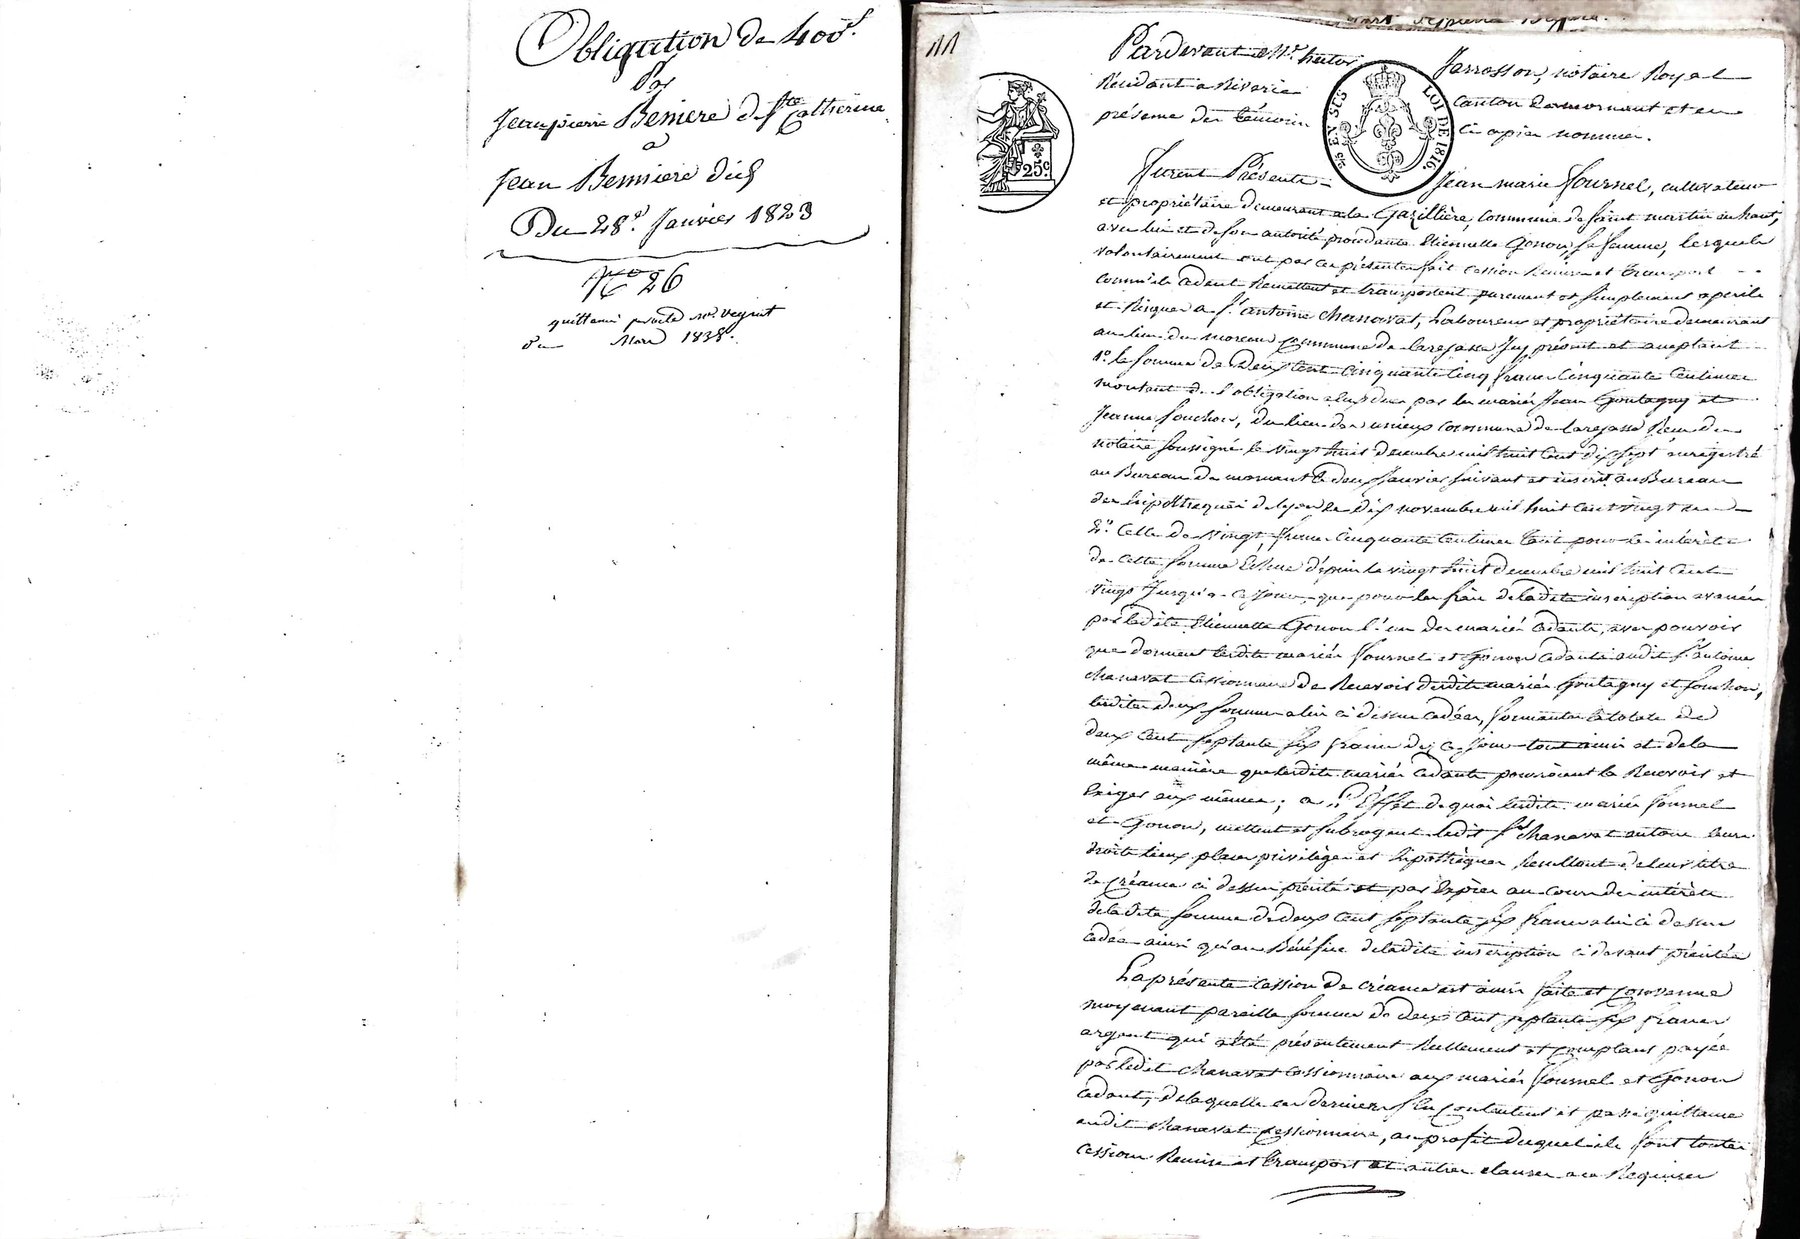 Obligation de 400f.
Par
Jean pierre Beniere de Ste Catherine
a
Jean Benniere dud.
Du 28e. Janvier 1823
No 26
quittancé par acte Me. Veyrat
du Mars 1838.
11
Pardevant Me. hector Jarrosson, notaire Royal
Résidant a Riverie canton de mornant et en
présence des témoins ci apres nommés.
25c
25 EN SES LOI DE 1816
Furent Présents Jean marie Fournel, cultivateur
et propriétaire demeurant a la Gazillière, commune de saint martin en haut,
avec lui et de son autorité procédante Etiennette Gonon, sa femme, lesquels
volontairement ont par ces présentes fait cession Remise et transport
comm'ils cedent Remettent et transportent purement et simplement a perils
et Risques a Sr. antoine Chanavat, Laboureur et propriétaire demeurant
au lieu du commune de larajasse Icy présent et acceptant
1o. la somme de Deux Cent Cinquante Cinq francs Cinquante Centimes
montant de l'obligation a eux due par les mariés Jean Goutagny et
Jeanne fouchon, du lieu des commune de larajasse Recue du
notaire soussigné le vingt huit decembre mil huit cent dix sept enregistré
au Bureau de mornant le deux Janvier suivant et inscrit au Bureau
des hipothèques de lyon le Dix novembre mil huit cent vingt
2o. Celle de vingt francs Cinquante Centimes tant pour les intérèts
de cette somme Echus depuis le vingt huit decembre mil huit cent
vingt Jusqu'a ce Jour, que pour les frais de ladite inscription avancés
par ladite Etiennette Gonon l'un des mariés cedants, avec pouvoir
que donnent lesdits mariés Fournel et Gonon cedants audit Sr. antoine
Chanavat cessionnaire de Recevoir desdits mariés Goutagny et fouchon,
lesdites deux sommes ci dessus cedées, formantes la totale de
deux cent septante six francs des ce Jour tout ainsi et de la
même manière que lesdits mariés cedants pourroient le Recevoir et
Exiger eux mêmes; a l'Effet de quoi lesdits mariés Fournel
et Gonon, mettent et subrogent ledit Sr. Chanavat en tous leurs
droits lieux places privilèges et hipothèques Resultant de leur titre
de créance ci dessus précité et par Exprès au cours des intérèts
de ladite somme de deux cent septante six francs ci dessus
cedée ainsi qu'au Bénéfice de ladite inscription ci devant précitée
La présente cession de créance est ainsi faite et convenue
moyenant pareille somme de deux cent septante six francs
argent qui a été présentement Réellement et comptant payée
par ledit Chanavat cessionnaire aux mariés Fournel et Gonon
cedants, de laquelle ces derniers s'En contentent et passe quittance
audit Chanavat cessionnaire, au profit duquel ils font toutes
cessions Remise et transport et autres clauses a ce Requises